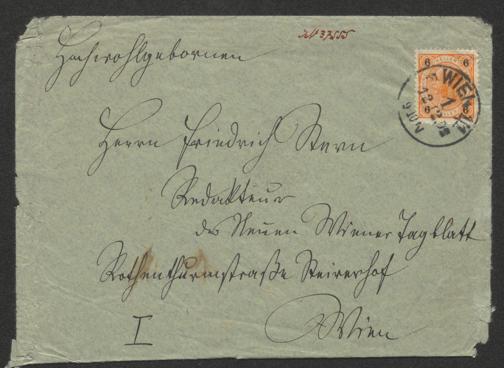 Hochwohlgebornen
Herrn Friedrich Stern
Redakteur
des Neuen Wiener Tagblatt
Rothenthurmstraße Steirerhof
I
Wien
6 6
WIEN
1